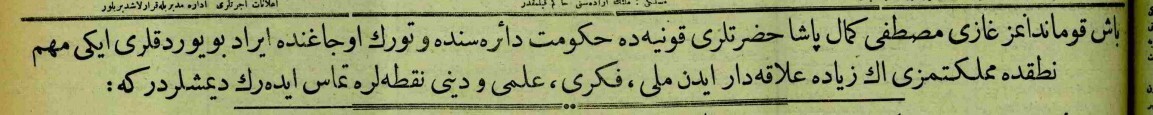 اعلانات اجرتلری اداره مدیریله قرارلاشدیریلور
باش قوماندانمز غازی مصطفی کمال پاشا حضرتلری قونیه‌ده حکومت دائره‌سنده و تورك اوجاغنده ایراد بویوردقلری ایکی مهم
نطقده مملکتمزی اك زیاده علاقه‌دار ایدن ملی ، فکری ، علمی و دینی نقطه‌لره تماس ایده‌رك دیمشلردر که :